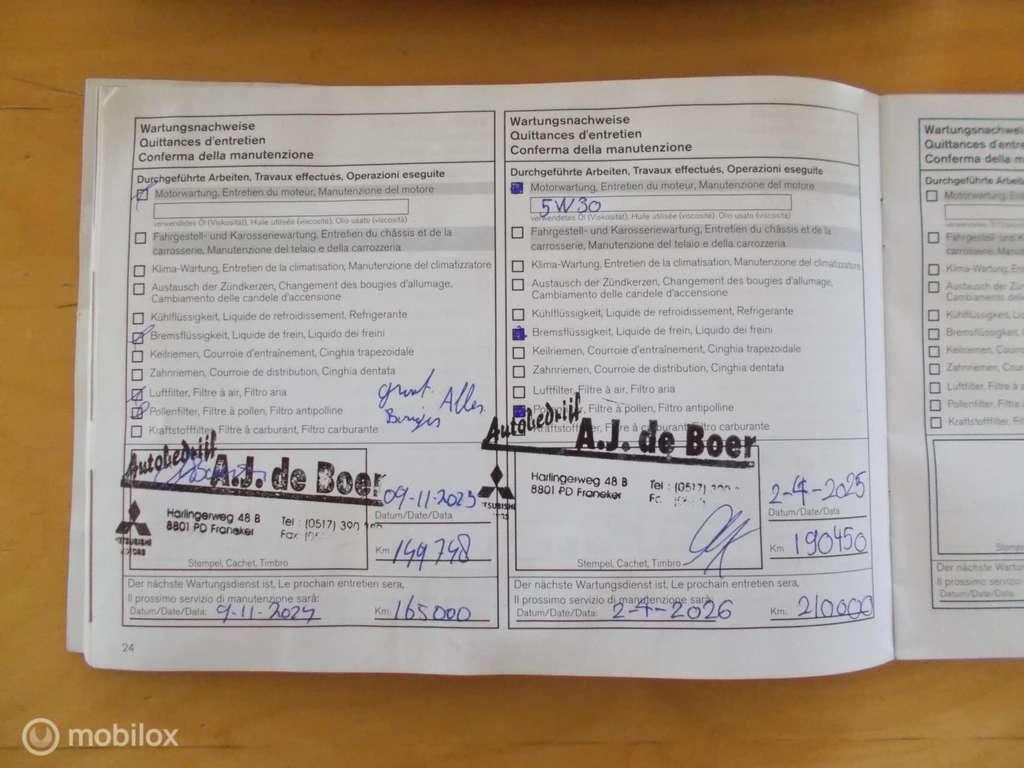 Wartungsnachweise
Quittances d'entretien
Conferma della manutenzione
Durchgeführte Arbeiten, Travaux effectués, Operazioni eseguite
Motorwartung, Entretien du moteur, Manutenzione del motore
verwendetes Öl (Viskosität), Huile utilisée (viscosité), Olio usato (viscosità)
Fahrgestell- und Karosseriewartung, Entretien du châssis et de la
carrosserie, Manutenzione del telaio e della carrozzeria
Klima-Wartung, Entretien de la climatisation, Manutenzione del climatizzatore
Austausch der Zündkerzen, Changement des bougies d'allumage,
Cambiamento delle candele d'accensione
Kühlflüssigkeit, Liquide de refroidissement, Refrigerante
Bremsflüssigkeit, Liquide de frein, Liquido dei freini
Keilriemen, Courroie d'entraînement, Cinghia trapezoidale
Zahnriemen, Courroie de distribution, Cinghia dentata
Luftfilter, Filtre à air, Filtro aria
Pollenfilter, Filtre à pollen, Filtro antipolline
Kraftstofffilter, Filtre à carburant, Filtro carburante
Autobedrijf
A.J. de Boer
Harlingerweg 48 B
8801 PD Franeker
Tel : (0517) 390
Fax
09-11-2023
Datum/Date/Data
Km 149748
Stempel, Cachet, Timbro
Der nächste Wartungsdienst ist, Le prochain entretien sera,
Il prossimo servizio di manutenzione sarà:
Datum/Date/Data: 9-11-2024 Km: 165000
24
Wartungsnachweise
Quittances d'entretien
Conferma della manutenzione
Durchgeführte Arbeiten, Travaux effectués, Operazioni eseguite
Motorwartung, Entretien du moteur, Manutenzione del motore
5W30
verwendetes Öl (Viskosität), Huile utilisée (viscosité), Olio usato (viscosità)
Fahrgestell- und Karosseriewartung, Entretien du châssis et de la
carrosserie, Manutenzione del telaio e della carrozzeria
Klima-Wartung, Entretien de la climatisation, Manutenzione del climatizzatore
Austausch der Zündkerzen, Changement des bougies d'allumage,
Cambiamento delle candele d'accensione
Kühlflüssigkeit, Liquide de refroidissement, Refrigerante
Bremsflüssigkeit, Liquide de frein, Liquido dei freini
Keilriemen, Courroie d'entraînement, Cinghia trapezoidale
Zahnriemen, Courroie de distribution, Cinghia dentata
Luftfilter, Filtre à air, Filtro aria
Pollenfilter, Filtre à pollen, Filtro antipolline
Kraftstofffilter, Filtre à carburant, Filtro carburante
Autobedrijf
A.J. de Boer
Harlingerweg 48 B
8801 PD Franeker
Tel : (0517)
2-4-2025
Datum/Date/Data
Km 190450
Stempel, Cachet, Timbro
Der nächste Wartungsdienst ist, Le prochain entretien sera,
Il prossimo servizio di manutenzione sarà:
Datum/Date/Data: 2-4-2026 Km: 210000
Wartungsnachweise
Quittances d'entre
Conferma della m
Durchgeführte Arbeite
Motorwartung, Entre
verwendetes Öl (Visko
Fahrgestell- und K
carrosserie, Manu
Klima-Wartung, Ent
Austausch der Zün
Cambiamento delle
Kühlflüssigkeit, Li
Bremsflüssigkeit, L
Keilriemen, Courro
Zahnriemen, Cour
Luftfilter, Filtre à a
Pollenfilter, Filtre à
Kraftstofffilter, Filt
Der nächste War
Il prossimo servizio
Datum/Date/Data:
mobilox